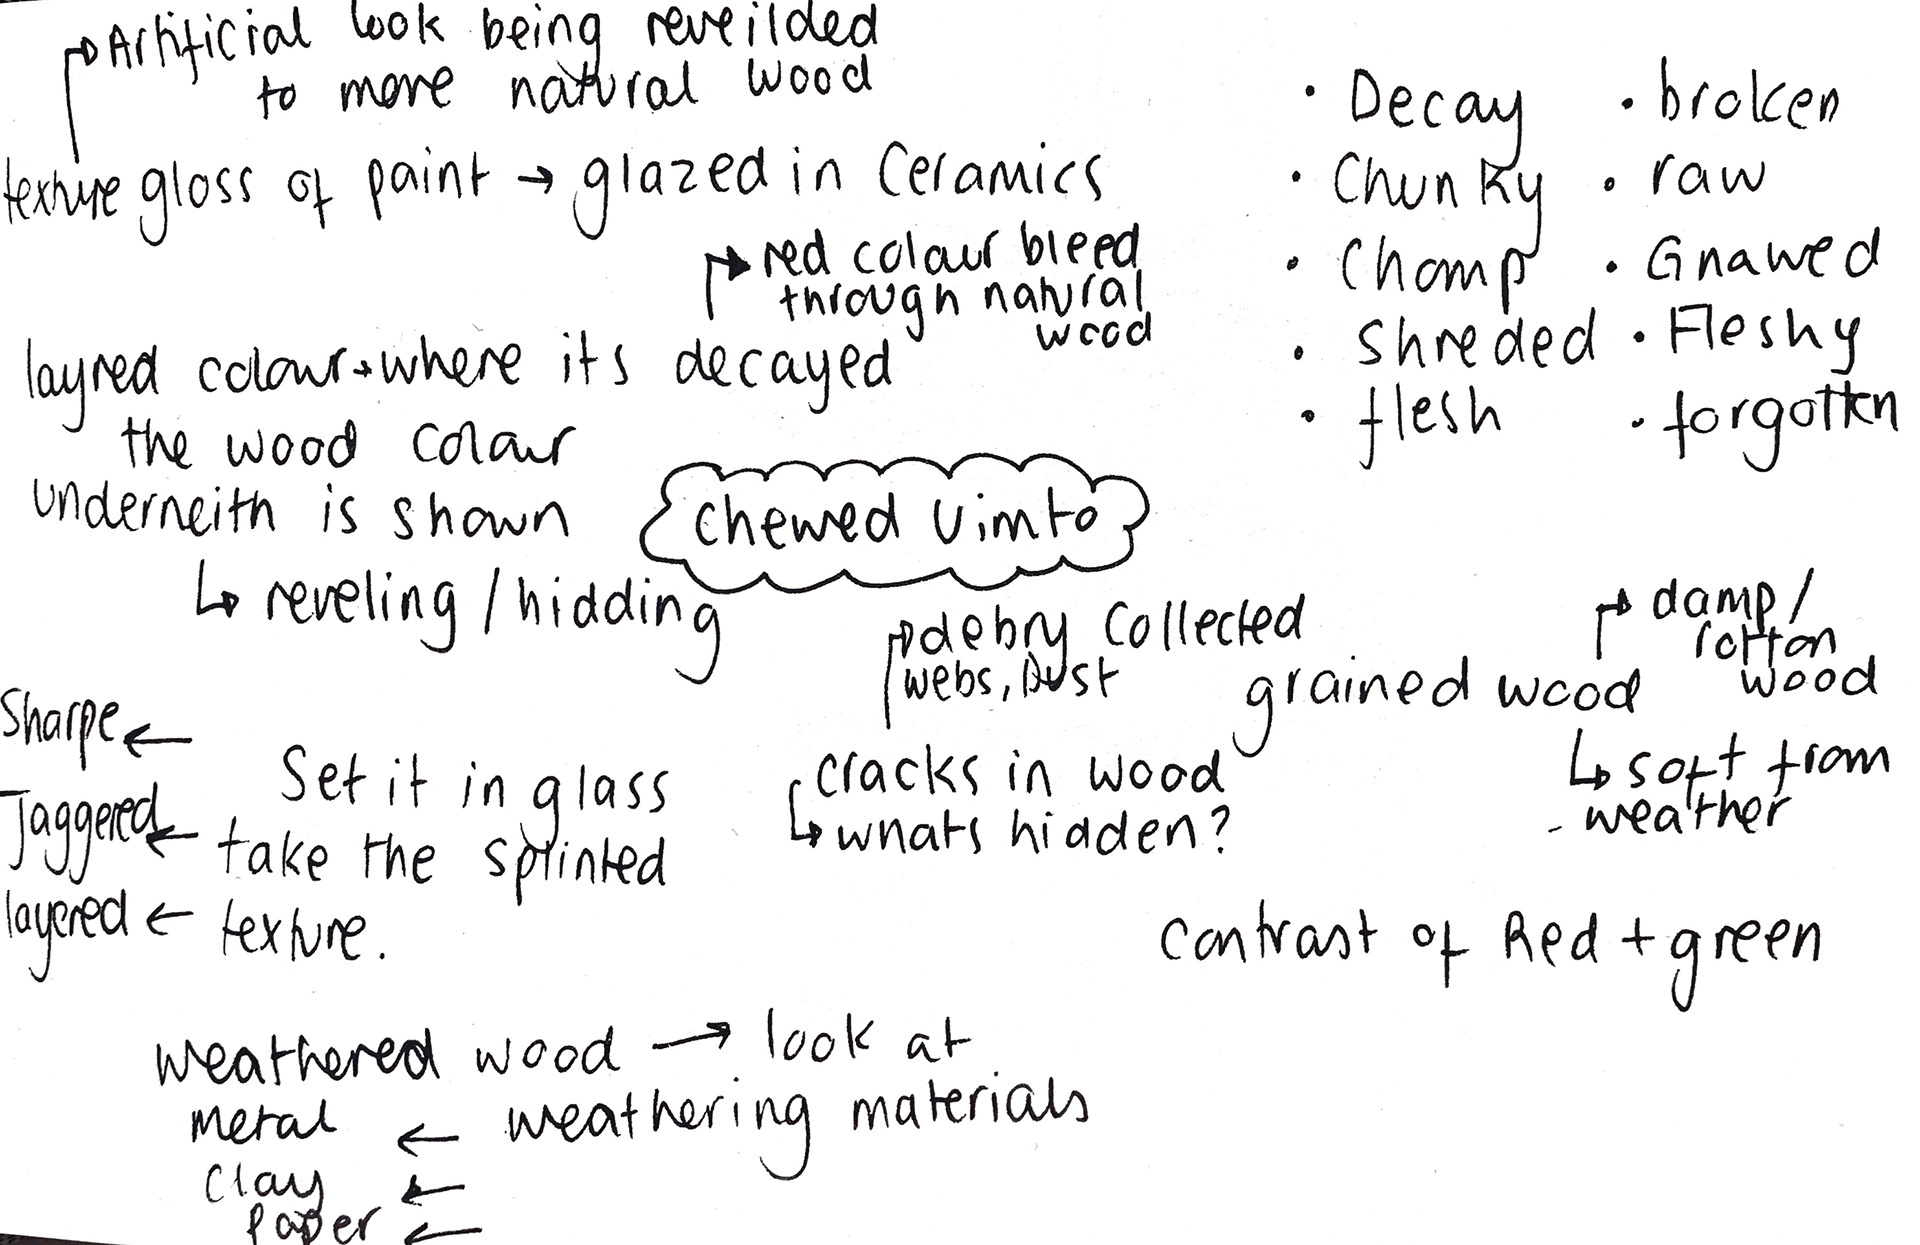 Artificial look being reveilded
to more natural wood
texture gloss of paint → glazed in Ceramics
red colour bleed
through natural
wood
layred colour → where its decayed
the wood colour
underneith is shown
reveling / hidding
• Decay
• Chunky
• Chomp
• Shreded
• flesh
• broken
• raw
• Gnawed
• Fleshy
• forgotten
Chewed Vimto
debry collected
webs, Dust
cracks in wood
whats hidden?
damp/
rotton
wood
grained wood
soft from
weather
Sharpe ←
Jaggered ←
layered ←
Set it in glass
take the splinted
texture.
Contrast of Red + green
weathered wood → look at
weathering materials
metal ←
Clay ←
Paper ←